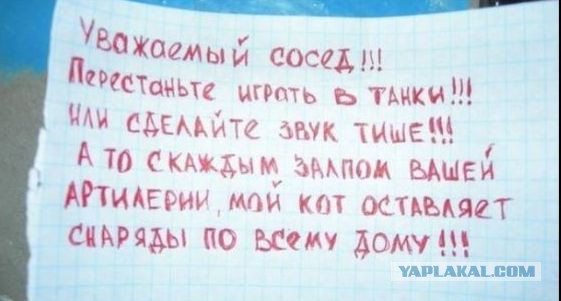 Уважаемый сосед!!!
Перестаньте играть в танки!!!
Или сделайте звук тише!!!
А то скаждым залпом вашей
артилерии, мой кот оставляет
снаряды по всему дому!!!
YAPLAKAL.COM